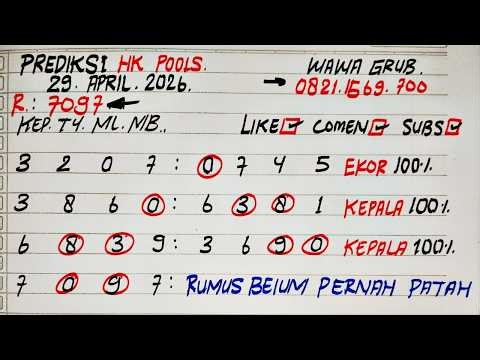 PREDIKSI HK POOLS. WAWA GRUB.
29. APRIL. 2026. → 0821.1569.700
R.: 7097 ←
KEP. TY. ML. MB., LIKE☑ COMEN☑ SUBS☑
3 2 0 7 : 0 7 4 5 EKOR 100%
3 8 6 0 : 6 3 8 1 KEPALA 100%.
6 8 3 9 : 3 6 9 0 KEPALA 100%.
7 0 9 7 : RUMUS BEIUM PERNAH PATAH